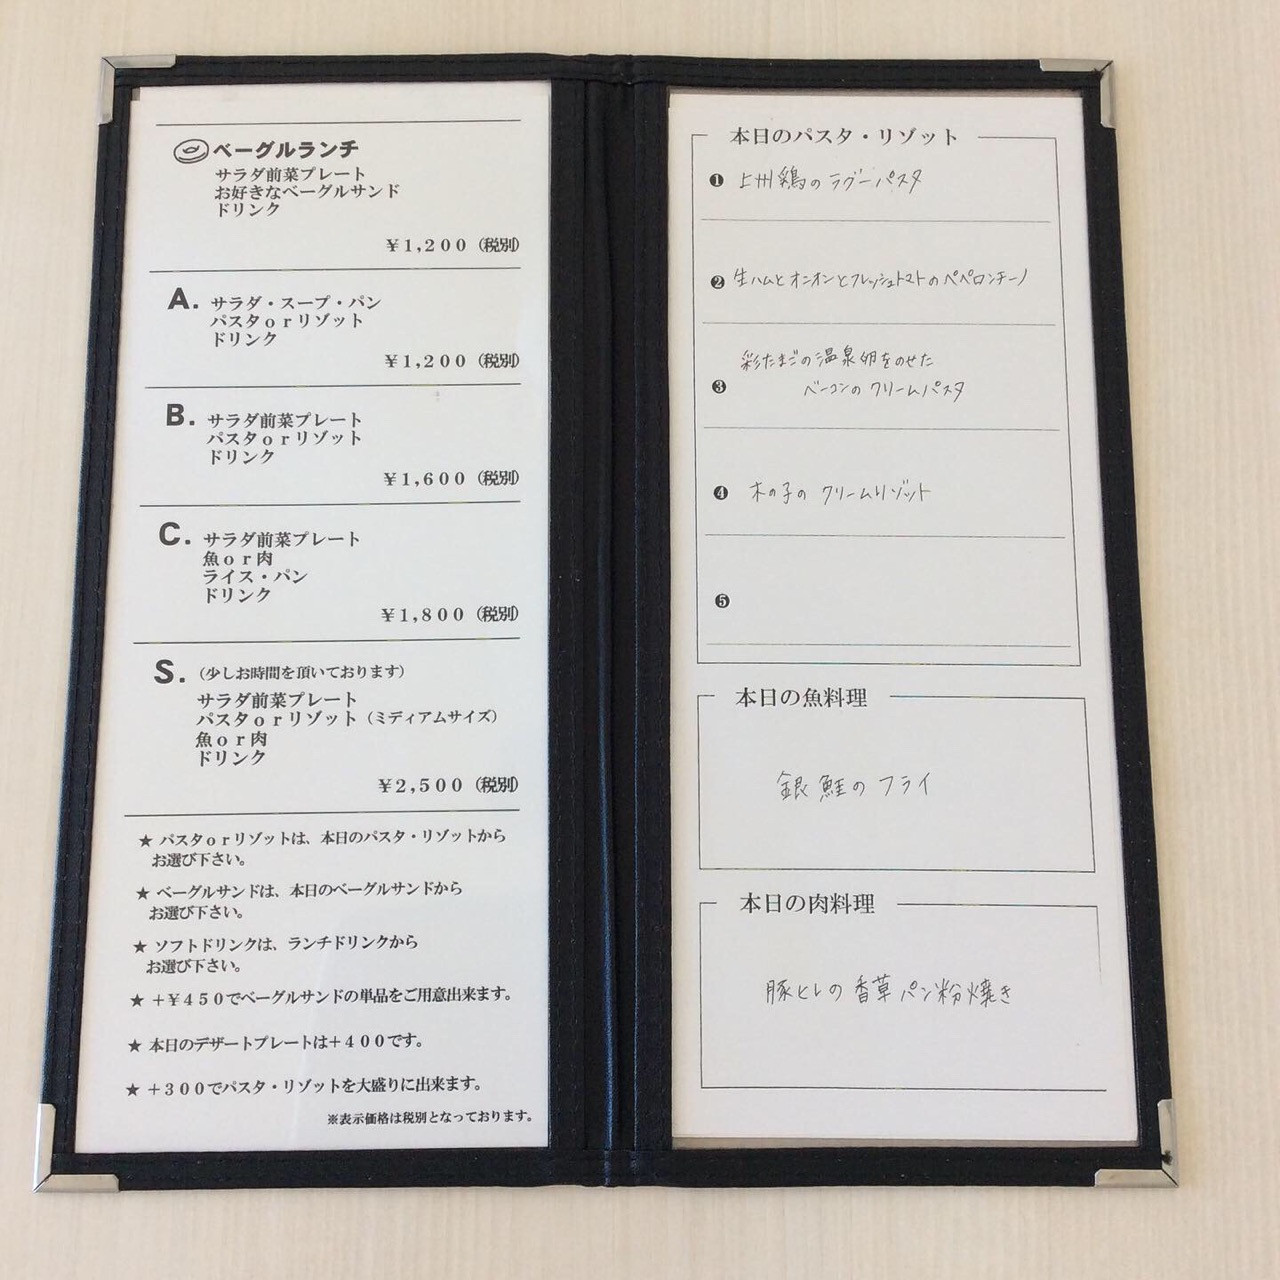 ベーグルランチ
サラダ前菜プレート
お好きなベーグルサンド
ドリンク
¥1,200（税別）
A. サラダ・スープ・パン
パスタorリゾット
ドリンク
¥1,200（税別）
B. サラダ前菜プレート
パスタorリゾット
ドリンク
¥1,600（税別）
C. サラダ前菜プレート
魚or肉
ライス・パン
ドリンク
¥1,800（税別）
S.（少しお時間を頂いております）
サラダ前菜プレート
パスタorリゾット（ミディアムサイズ）
魚or肉
ドリンク
¥2,500（税別）
★ パスタorリゾットは、本日のパスタ・リゾットから
お選び下さい。
★ ベーグルサンドは、本日のベーグルサンドから
お選び下さい。
★ ソフトドリンクは、ランチドリンクから
お選び下さい。
★ +¥450でベーグルサンドの単品をご用意出来ます。
★ 本日のデザートプレートは+400です。
★ +300でパスタ・リゾットを大盛りに出来ます。
※表示価格は税別となっております。
本日のパスタ・リゾット
❶ 上州鶏のラグーパスタ
❷ 生ハムとオニオンとフレッシュトマトのペペロンチーノ
彩たまごの温泉卵をのせた
❸ ベーコンのクリームパスタ
❹ 木の子のクリームリゾット
❺
本日の魚料理
銀鮭のフライ
本日の肉料理
豚ヒレの香草パン粉焼き